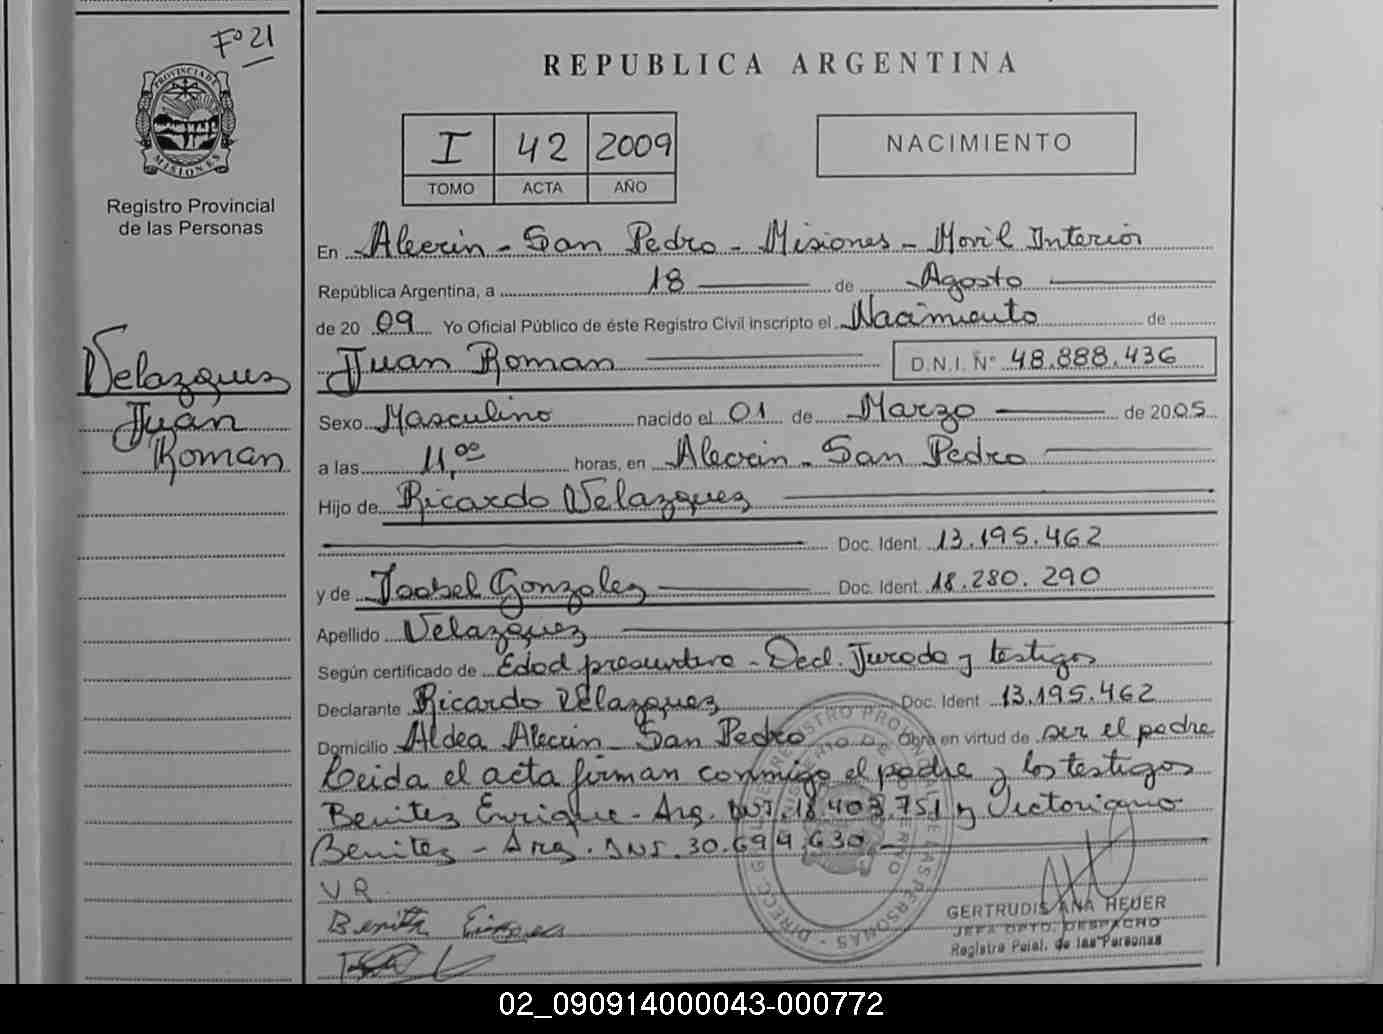 Fº 21
PROVINCIA DE MISIONES
Registro Provincial
de las Personas
Velazquez
Juan
Roman
REPUBLICA ARGENTINA
I 42 2009
TOMO ACTA AÑO
NACIMIENTO
En Alecrin - San Pedro - Misiones - Movil Interior
República Argentina, a 18 de Agosto
de 20 09 Yo Oficial Público de éste Registro Civil inscripto el Nacimiento de
Juan Roman D.N.I. Nº 48.888.436
Sexo Masculino nacido el 01 de Marzo de 2005
a las 11,00 horas, en Alecrin - San Pedro
Hijo de Ricardo Velazquez
Doc. Ident. 13.195.462
y de Isabel Gonzalez Doc. Ident. 18.280.290
Apellido Velazquez
Según certificado de Edad presuntiva - Decl. Jurada y testigos
Declarante Ricardo Velazquez Doc. Ident 13.195.462
Domicilio Aldea Alecrin - San Pedro Obra en virtud de ser el padre
Leida el acta firman conmigo el padre y los testigos
Benitez Enrique - Arg. DNI. 18.403.751 y Victoriano
Benitez - Arg. DNI. 30.694.630.
V R
Benitez
GERTRUDIS ANA HEUER
JEFA DPTO. DESPACHO
Registro Pcial. de las Personas
02_090914000043-000772